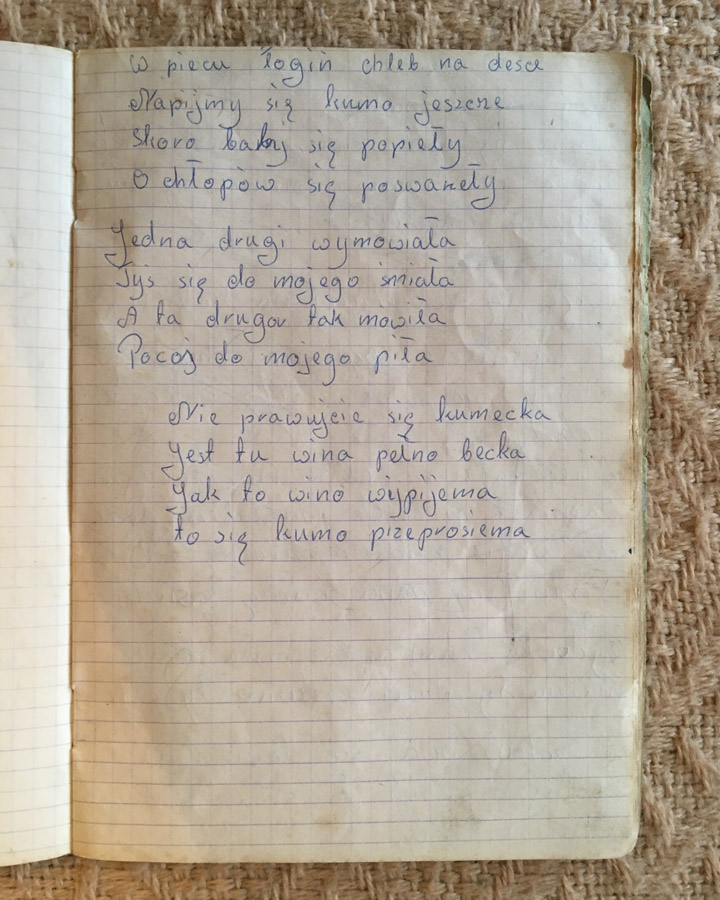 W piecu łogiń chleb na desce
Napijmy się kumo jeszcze
Skoro baby się popieły
O chłopów się poswarzeły
Jedna drugi wymowiała
Tyś się do mojego śmiała
A ta drugou tak mówiła
Pocoś do mojego piła
Nie prawujcie się kumecka
Jest tu wina pełno becka
Jak to wino wypijema
to się kumo przeprosiema